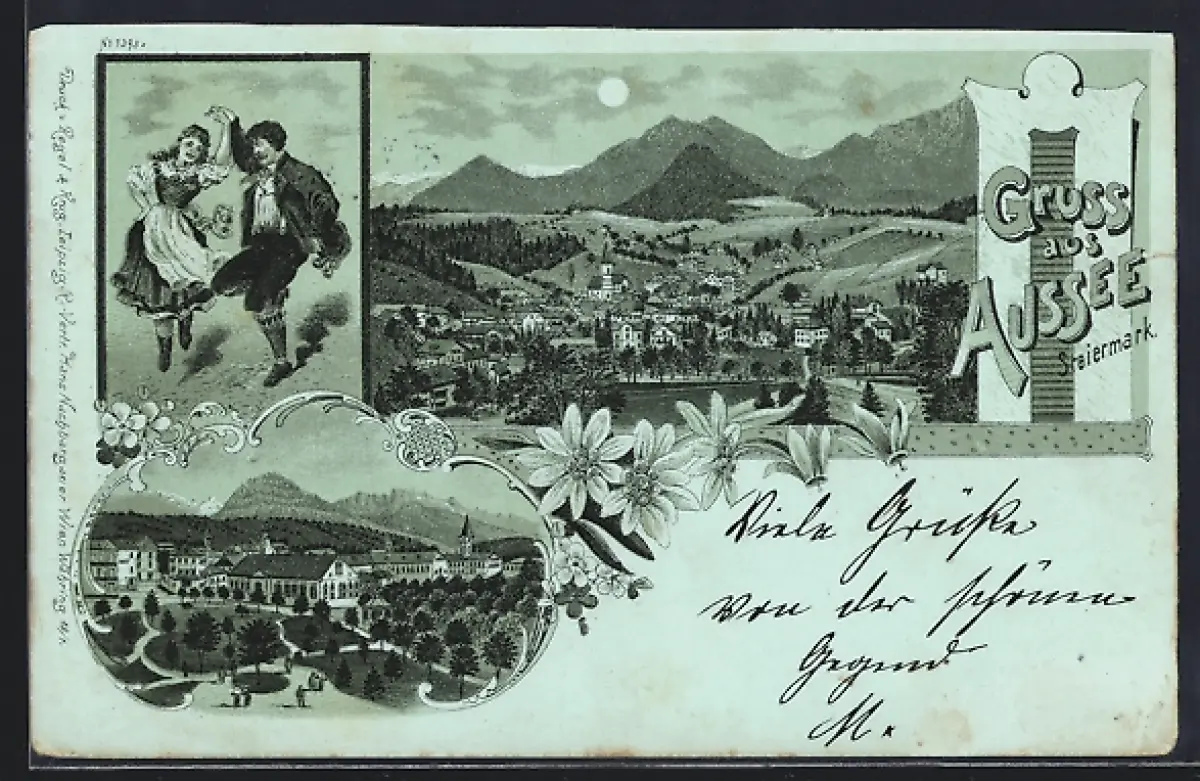 Gruss
aus
AUSSEE
Steiermark.
Viele Grüße
von der schönen
Gegend
M.
Druck v. Regel & Krug, Leipzig-R. Vertr. Hans Nachbargauer Wien Währing